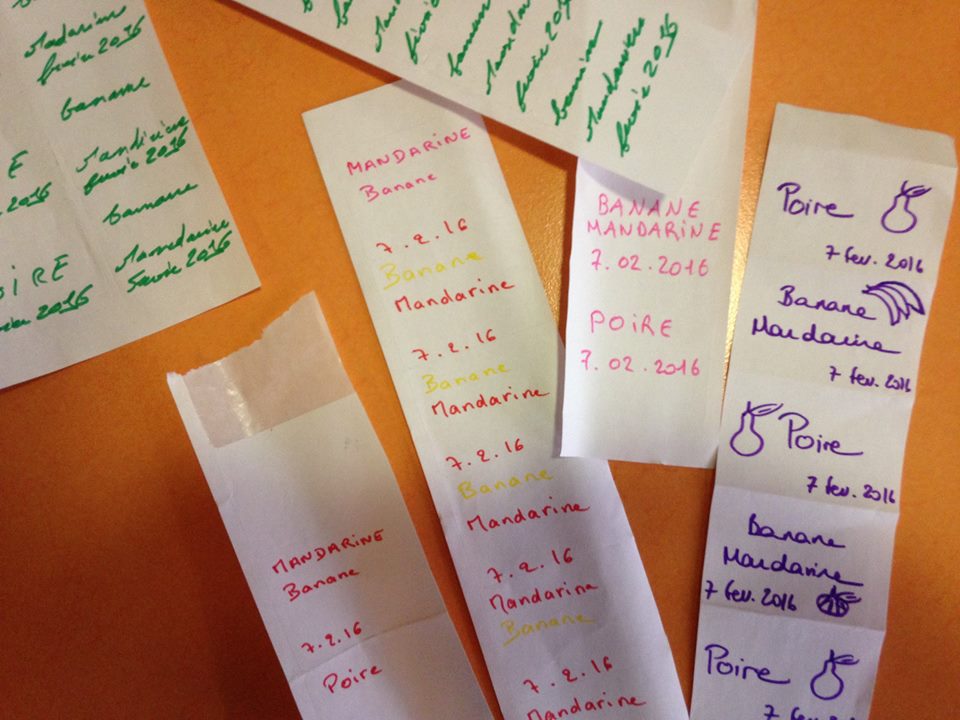 Madarine
fevrie 2016
banane
Mandarine
fevrie 2016
banane
Mandarine
fevrie 2016
E
2016
OIRE
2016
banane
Mandarine
fevrie 2016
banane
Mandarine
fevrie 2016
MANDARINE
Banane
7.2.16
Banane
Mandarine
7.2.16
Banane
Mandarine
7.2.16
Banane
Mandarine
7.2.16
Mandarine
Banane
7.2.16
Mandarine
MANDARINE
Banane
7.2.16
Poire
BANANE
MANDARINE
7.02.2016
POIRE
7.02.2016
Poire
7 fev. 2016
Banane
Mandarine
7 fev. 2016
Poire
7 fev. 2016
Banane
Mandarine
7 fev. 2016
Poire
7 fev. 2016